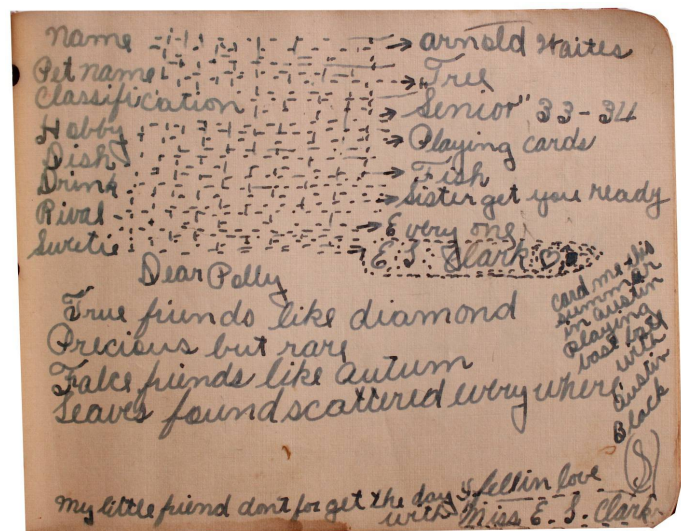 Name → Arnold Waites
Pet name → Tree
Classification → Senior" 33-34
Hobby → Playing cards
Dish → Fish
Drink → Sister get you ready
Rival → Every one
Suretie → E. S. Clark
Dear Polly
True friends like diamond
Precious but rare
Falce friends like autum
Leaves found scattered every where
card me this
summer
in austin
playing
base ball
with
Austin
Black
S
My little friend dont forget the day I fell in love
with Miss E. S. Clark